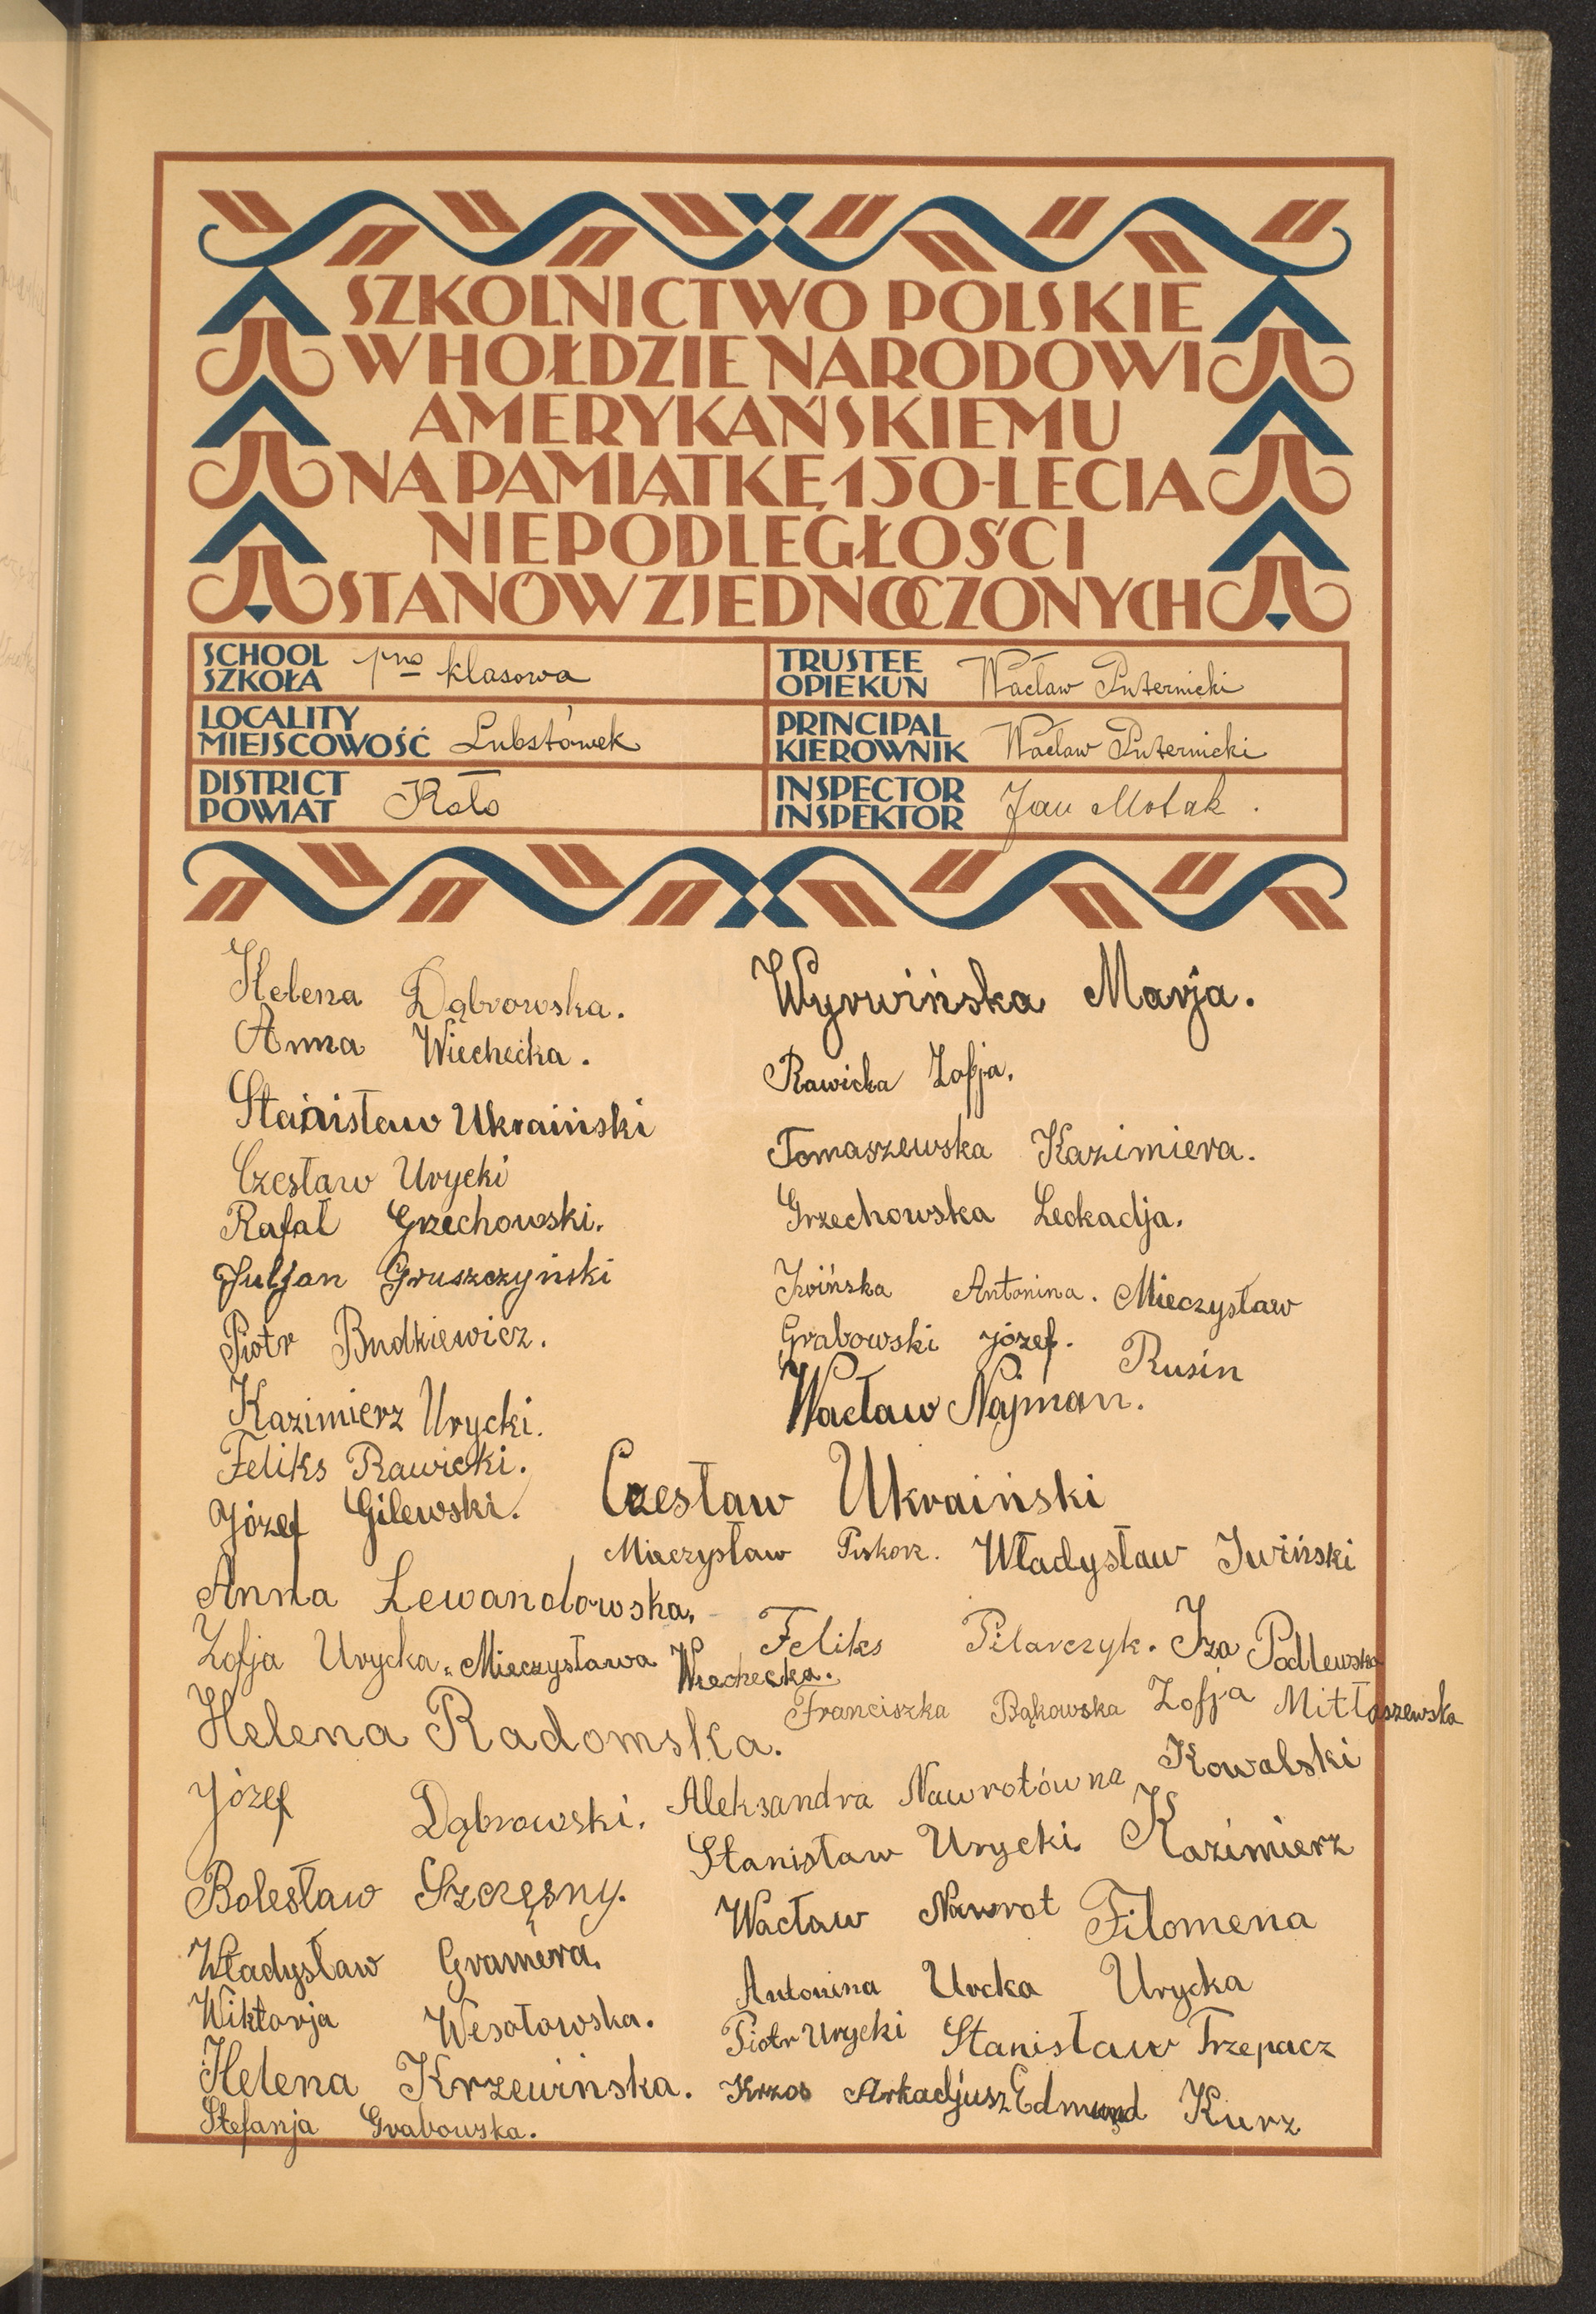 SZKOLNICTWO POLSKIE
W HOŁDZIE NARODOWI
AMERYKAŃSKIEMU
NA PAMIĄTKĘ 150-LECIA
NIEPODLEGŁOŚCI
STANÓW ZJEDNOCZONYCH
SCHOOL
SZKOŁA 1no klasowa
TRUSTEE
OPIEKUN Wacław Puternicki
LOCALITY
MIEJSCOWOŚĆ Lubstówek
PRINCIPAL
KIEROWNIK Wacław Puternicki
DISTRICT
POWIAT Koło
INSPECTOR
INSPEKTOR Jan Motak.
Helena Dąbrowska.
Anna Wiechecka.
Stanisław Ukraiński
Czesław Urycki
Rafał Grzechowski.
Juljan Gruszczyński
Piotr Budkiewicz.
Kazimierz Urycki.
Feliks Rawicki.
Józef Gilewski.
Anna Lewandowska.
Zofja Urycka. Mieczysława Wiechecka.
Helena Radomska.
Józef Dąbrowski.
Bolesław Szczęsny.
Władysław Gramera.
Wiktorja Wesołowska.
Helena Krzewińska.
Stefanja Grabowska.
Wyrwińska Marja.
Rawicka Zofja.
Tomaszewska Kazimiera.
Grzechowska Leokadja.
Antonina.
Mieczysław Rusin
Grabowski Józef.
Wacław Najman.
Czesław Ukraiński
Mieczysław Piskorz. Władysław Iwiński
Feliks Pilarczyk. Iza Podlewska
Franciszka Bąkowska Zofja Mitłaszewska
Aleksandra Nawrotówna Kowalski
Stanisław Urycki Kazimierz
Wacław Nawrot Filomena
Antonina Urcka Urycka
Piotr Urycki Stanisław Trzepacz
Krzos Arkadjusz Edmund Kurz